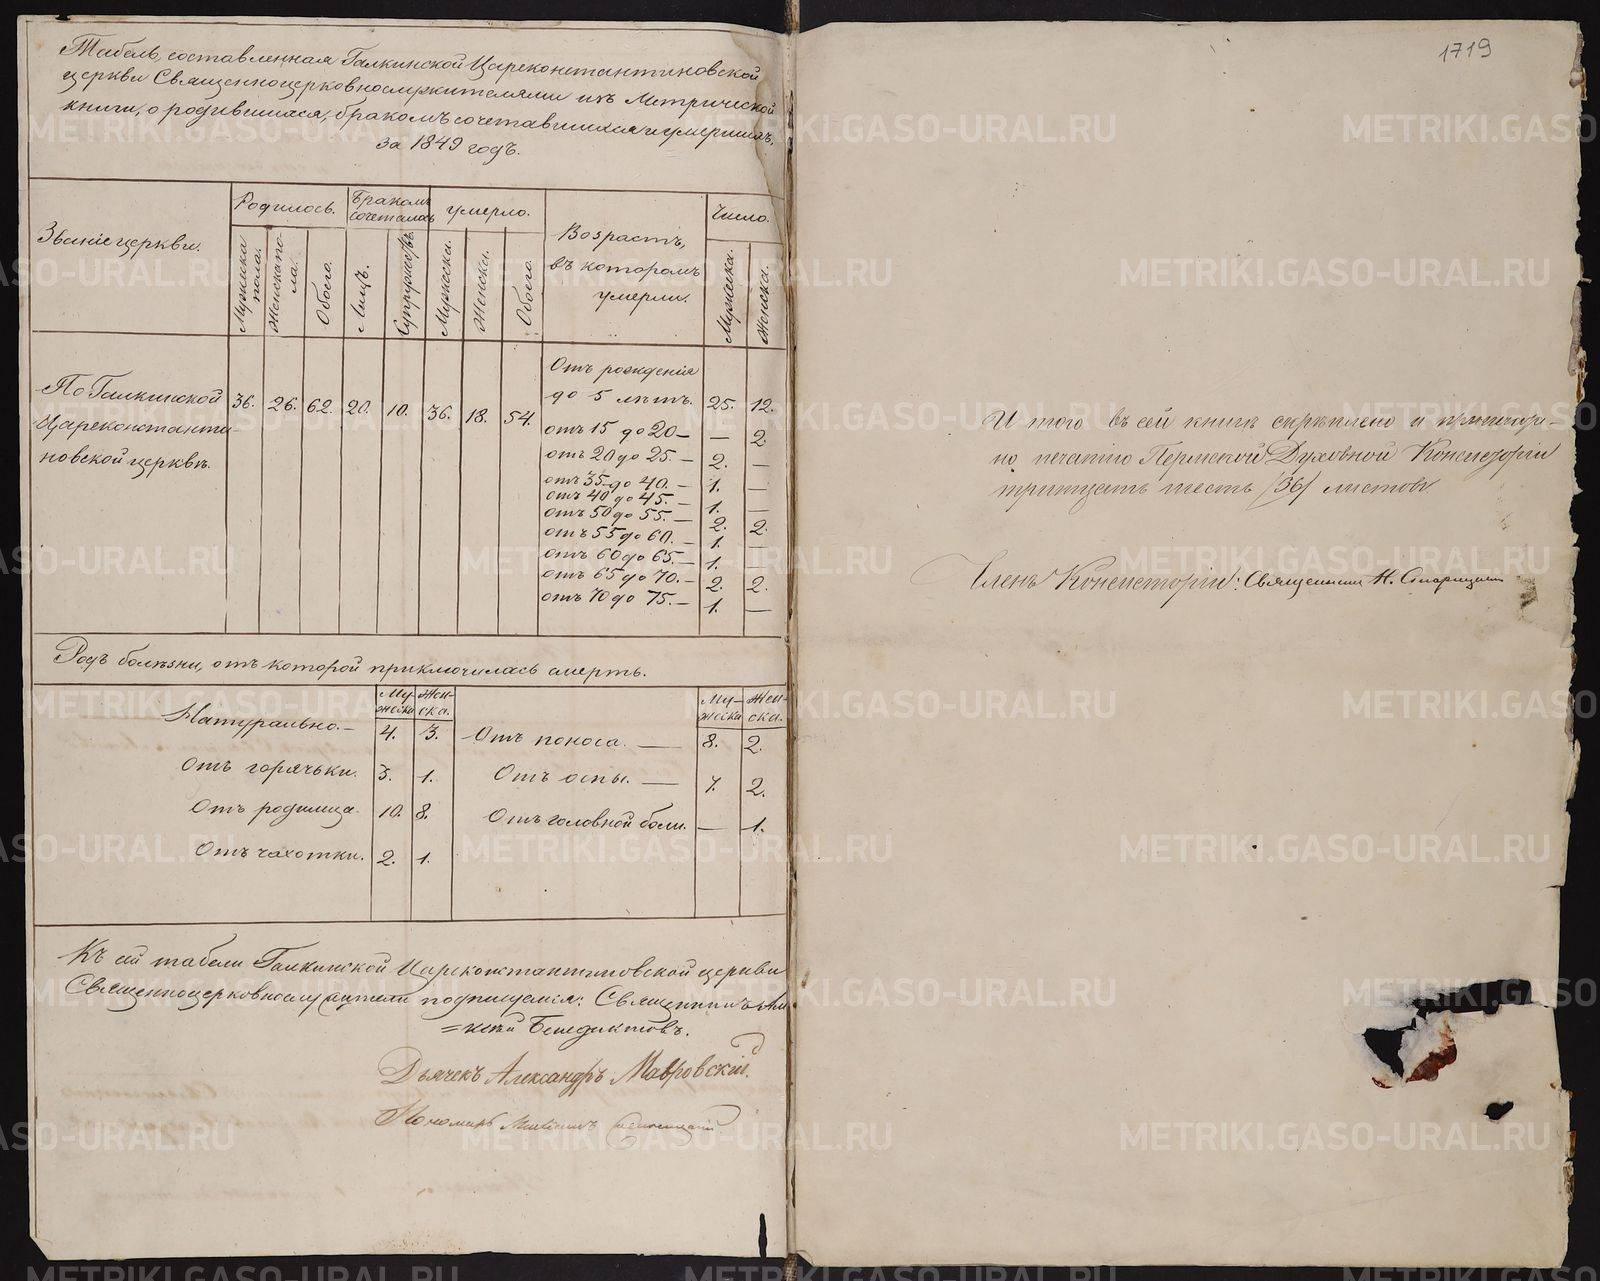 Табель, составленная Галкинской Цареконстантиновской
церкви Священноцерковнослужителями изъ Метрической
книги, о родившихся, бракомъ сочетавшихся и умершихъ,
за 1849 годъ.
Званіе церкви.
Родилось.
Бракомъ сочеталось
умерло.
Возрастъ,
въ которомъ
умерли.
Число.
Мужеска пола.
Женска пола.
Обоего.
Лицъ.
Супружествъ.
Мужеска.
Женска.
Обоего.
Мужеска.
Женска.
По Галкинской
Цареконстанти-
новской церкви.
36. 26. 62. 20. 10. 36. 18. 54.
Отъ рожденія
до 5 лѣтъ. 25. 12.
отъ 15 до 20 — — 2.
отъ 20 до 25. — 2. —
отъ 35 до 40. — 1. —
отъ 40 до 45. — 1. —
отъ 50 до 55. — 2. 2.
отъ 55 до 60. — 1. —
отъ 60 до 65. — 1. —
отъ 65 до 70. — 2. 2.
отъ 70 до 75. — 1. —
Родъ болѣзни, отъ которой приключилась смерть.
Мужеска Женска.
Мужеска Женска.
Натурально. — 4. 3.
Отъ горячьки. 3. 1.
Отъ родимца. 10. 8.
Отъ чахотки. 2. 1.
Отъ поноса. — 8. 2.
Отъ оспы. — 7. 2.
Отъ головной боли. — 1.
Къ сей табели Галкинской Цареконстантиновской церкви
Священноцерковнослужители подписуемся: Священникъ Але-
=ксѣй Бенедиктовъ.
Дьячекъ Александръ Мавровскій.
Пономарь
1719
И того въ сей книгѣ скрѣплено и
но печатію Пермской Духовной Консисторіи
тритцать шесть /36/ листовъ.
Членъ Консисторіи: Священникъ Н.
METRIKI.GASO-URAL.RU